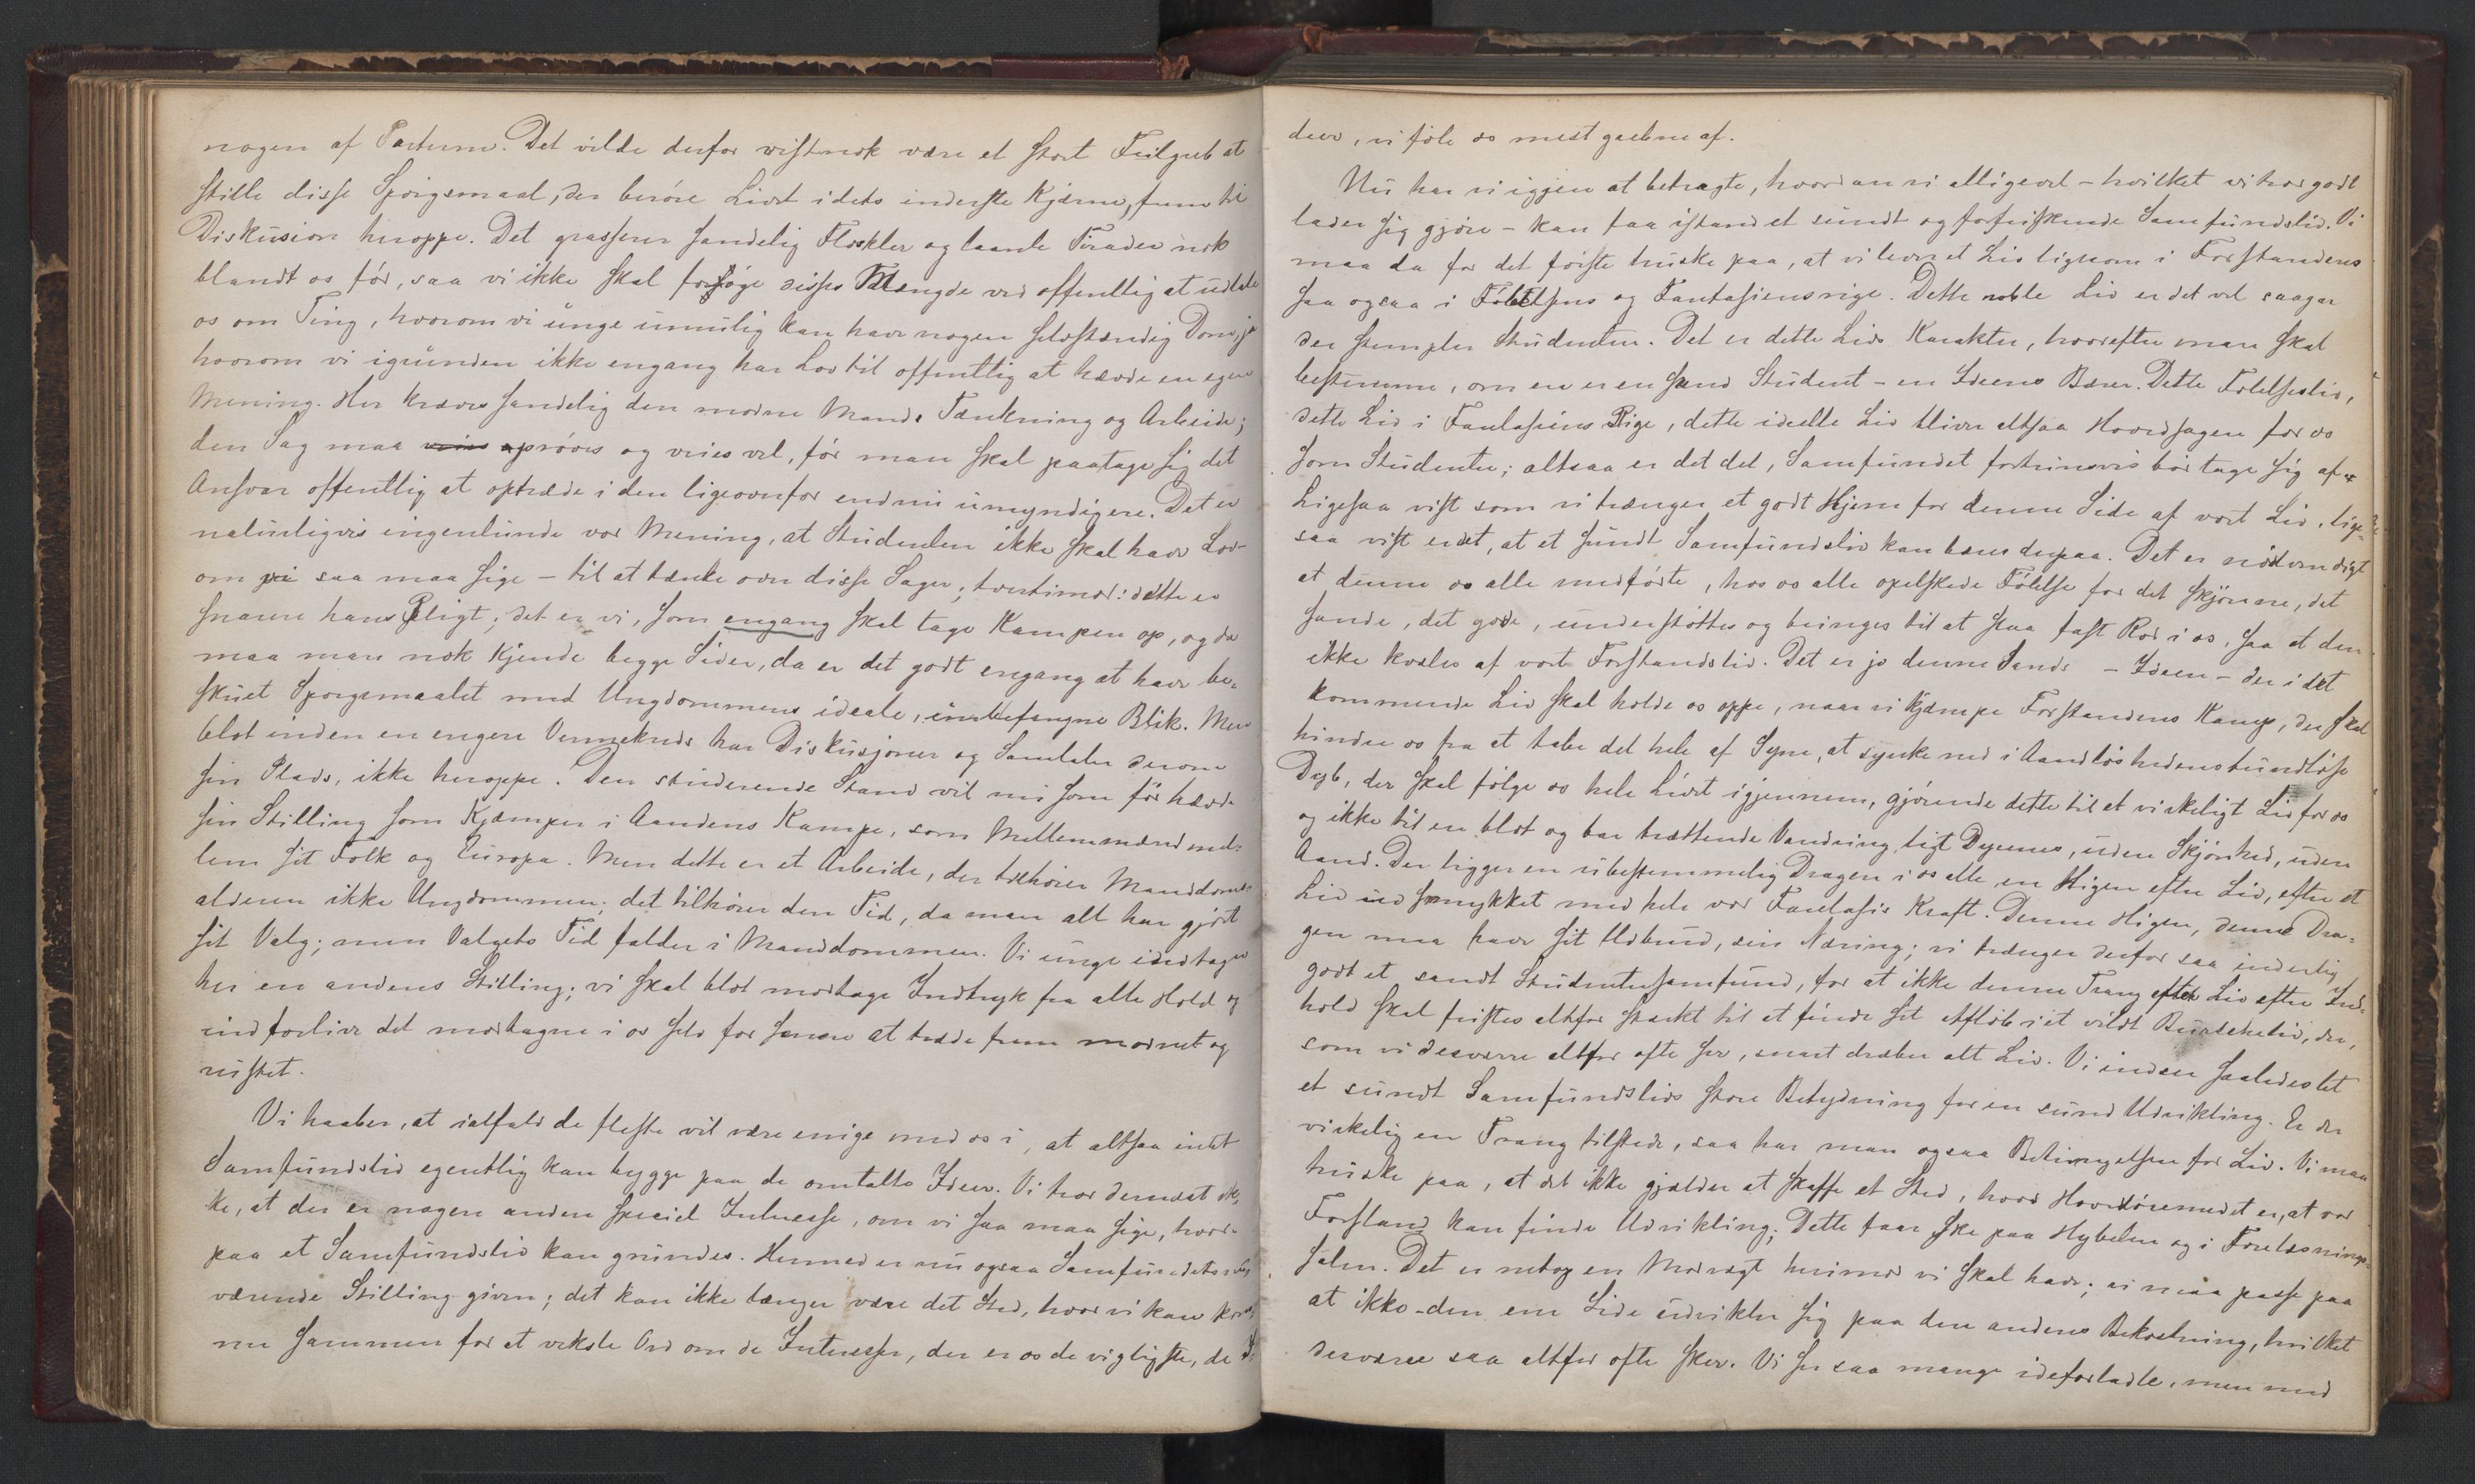 nogen af Parterne. Det vilde derfor vistnok være et stort Feilgreb at
stille disse Spørgsmaal, der berøre Livet i dets inderste Kjærne, frem til
Diskusion heroppe. Det grasserer sandelig Floskler og laante Tirader nok
blandt os før, saa vi ikke skal forøge disses Mængde ved offentlig at udtale
os om Ting, hvorom vi unge umulig kan have nogen selvstændig Dom, ja
hvorom vi igrunden ikke engang har Lov til offentlig at hævde en egen
Mening. Her kræves sandelig den modne Mands Tænkning og Arbeide;
den Sag maa veies prøves og veies vel, før man skal paatage sig det
Ansvar offentlig at optræde i den ligeoverfor endnu umyndigere. Det er
naturligvis ingenlunde vor Mening, at Studenten ikke skal have Lov-
om vi saa maa sige – til at tænke over disse Sager; tvertimod: dette er
snarere hans Pligt; det er vi, som engang skal tage Kampen op, og da
maa man nok kjende begge Sider, da er det godt engang at have be-
skuet Spørgsmaalet med Ungdommens ideale, uindbefangne Blik. Men
blot inden en engere Vennekreds har Diskusjoner og Samtaler derom
sin Plads, ikke heroppe. Den studerende Stand vil nu som før hævde
sin Stilling som Kjæmper i Aandens Kampe, som Mellemmænd mel-
lem sit Folk og Europa. Men dette er et Arbeide, der tilhører Manddoms-
alderen ikke Ungdommen; det tilhører den Tid, da man alt har gjort
sit Valg; men Valgets Tid falder i Manddommen. Vi unge indtager
her en andens Stilling; vi skal blot modtage Indtryk fra alle Hold og
indforlive det modtagne i os selv for senere at træde frem modnet og
rustet.
Vi haaber, at ialfald de fleste vil være enige med os i, at altsaa intet
Samfundsliv egentlig kan bygge paa de omtalte Ideer. Vi tror dernæst ik-
ke, at der er nogen anden speciel Interesse, om vi saa maa sige, hvor-
paa et Samfundsliv kan grundes. Hermed er nu ogsaa Samfundets nu-
værende Stilling given; det kan ikke længer være det Sted, hvor vi kan kom-
me sammen for at veksle Ord om de Interesser, der er os de vigtigste, de I-
deer, vi føle os mest grebne af.
Nu har vi igjen at betragte, hvordan vi alligevel – hvilket vi tror godt
lader sig gjøre – kan faa istand et sundt og forfriskende Samfundsliv. Vi
maa da for det første huske paa, at vi lever et Liv ligesom i Forstandens
saa ogsaa i Følelsens og Fantasiens rige. Dette noble Liv er det vel saagar
der stempler Studenten. Det er dette Livs Karakter, hvorefter man skal
bestemme, om en er en sand Student – en Ideens Bærer. Dette Følelsesliv,
dette Liv i Fantasiens Rige, dette ideelle Liv bliver altsaa Hovedsagen for os
som Studenter; altsaa er det det, Samfundet fortrinsvis bør tage sig af.
Ligesaa vist som vi trænger et godt Hjem for denne Side af vort Liv, lige-
saa vist er det, at et sundt Samfundsliv kan bæres derpaa. Det er nødvendigt
at denne os alle medfødte, hos os alle opelskede Følelse for det skjønne, det
sande, det gode, understøttes og bringes til at slaa fast Rod i os, saa at den
ikke kvæles af vort Forstandsliv. Det er jo denne Sands – Ideen – der i det
kommende Liv skal holde os oppe, naar vi kjæmpe Forstandens Kamp, der skal
hindre os fra at tabe det hele af Syne, at synke ned i Aandløshedens bundløse
Dyb, der skal følge os hele Livet igjennem, gjørende dette til et virkeligt Liv for os
og ikke til en blot og bar trættende Vandring ligt Dyrenes, uden Skjønhed, uden
Aand. Der ligger en ubestemmelig Dragen i os alle en Higen efter Liv, efter et
Liv udsmykket med hele vor Fantasis Kraft. Denne Higen, denne Dra-
gen maa have sit Udbrud, sin Næring; vi trænger derfor saa inderlig
godt et sandt Studentersamfund, for at ikke denne Trang efter Liv efter Ind-
hold skal fristes altfor stærkt til at finde sit Afløb i et vildt Burscheliv, der,
som vi desværre altfor ofte ser, snart dræber alt Liv. Vi indser saaledes let
et sundt Samfundslivs store Betydning for en sund Udvikling. Er der
virkelig en Trang tilstede, saa har man ogsaa Betingelsen for Liv. Vi maa
huske paa, at det ikke gjælder at skaffe et Sted, hvor Hovedøiemedet er, at vor
Forstand kan finde Udvikling; Dette faar ske paa Hybelen og i Forelæsnings-
salen. Det er netop en Modvægt herimod vi skal have; vi maa passe paa
at ikke den ene Side udvikler sig paa den andens Bekostning, hvilket
desværre saa altfor ofte sker. Vi ser saa mange ideforladte, men med